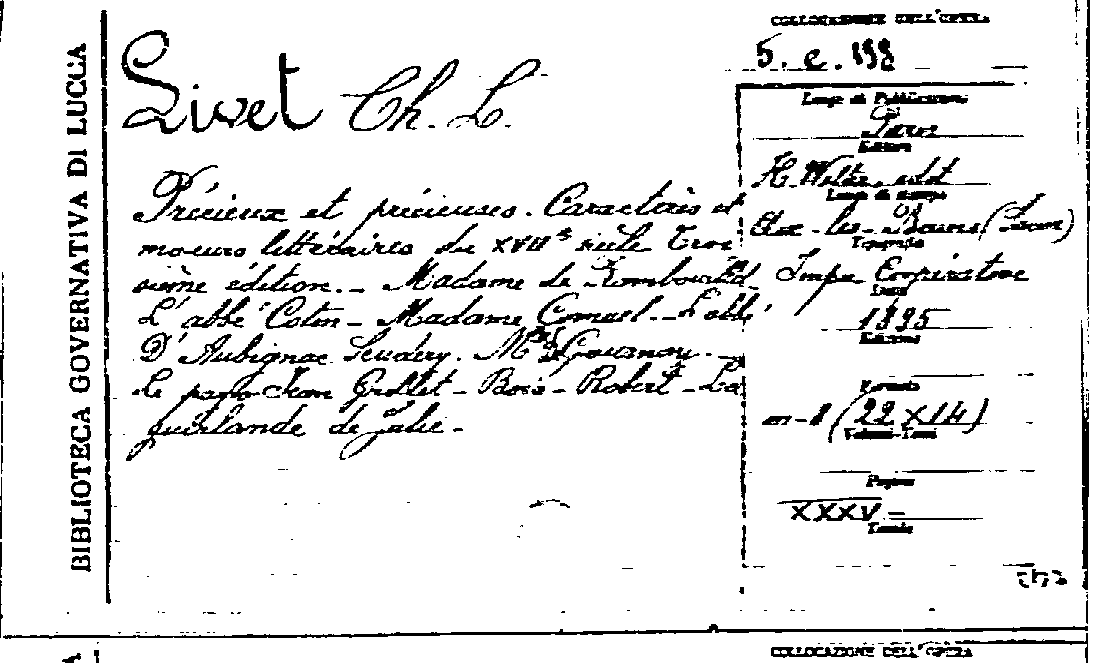 BIBLIOTECA GOVERNATIVA DI LUCCA
Livet Ch. L.
Précieux et précieuses. Caractères et
moeurs littéraires du XVIIe siècle Troi
sième édition. - Madame de
L'abbé Cotin - Madame Cornuel - L'abbé
D'Aubignac Scudéry. Mlle de Gournay. -
Le pays Jean Grillet - Bois - Robert - La
guirlande de Julie -
COLLOCAZIONE DELL'OPERA
5. e. 198
Luogo di Pubblicazione
Paris
Editore
H. Welter edit
Luogo di stampa
Aix - les - Bains (
Tipografia
Impr Coopérative
Data
1895
Edizione
Formato
in-8 (22 X 14)
Volumi-Tomi
Pagine
XXXV -
Tavole
COLLOCAZIONE DELL'OPERA